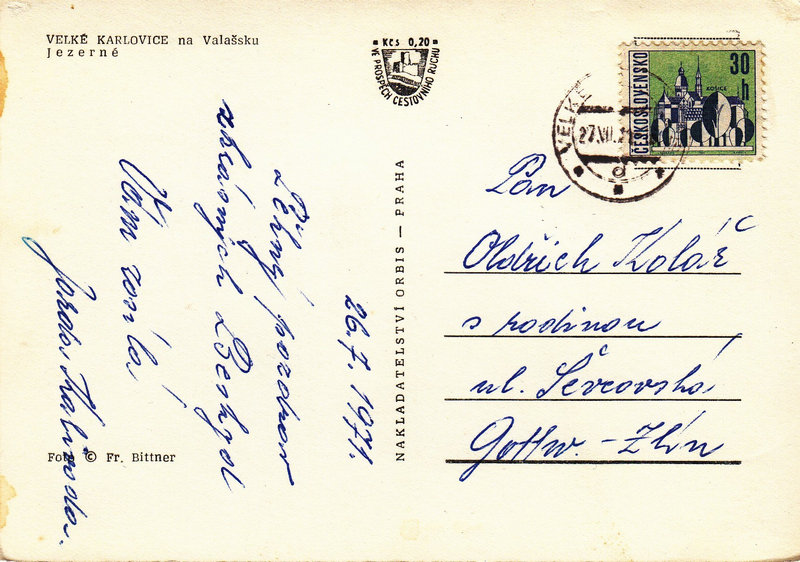 VELKÉ KARLOVICE na Valašsku
Jezerné
Kčs 0,20
VE PROSPĚCH CESTOVNÍHO RUCHU
ČESKOSLOVENSKO
30 h
KOŠICE
VELKÉ
27.VII.
d
26.7.1971.
Pěkný pozdrav
z krásných Beskyd
Vám zasílá
NAKLADATELSTVÍ ORBIS — PRAHA
Pan
Oldřich Kolář
s rodinou
ul. Ševcovská
Gottw. - Zlín
Foto © Fr. Bittner